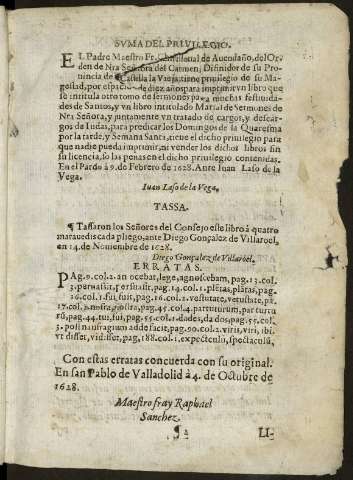 SVMA DEL PRIVILEGIO.
EL Padre Maestro Fr. Christoual de Auendaño, del Or-
den de Nra Señora del Carmen, Difinidor de su Pro-
uincia de Castilla la Vieja, tiene priuilegio de su Ma-
gestad, por espacio de diez años para imprimir vn libro que
se intitula otro tomo de sermones para muchas festiuida-
des de Santos, y vn libro intitulado Marial de Sermones de
Nra Señora, y juntamente vn tratado de cargos, y descar-
gos de Iudas, para predicar los Domingos de la Quaresma
por la tarde, y Semana Santa, tiene el dicho priuilegio para
que nadie pueda imprimir, ni vender los dichos libros sin
su licencia, so las penas en el dicho priuilegio contenidas.
En el Pardo à 9. de Febrero de 1628. Ante Iuan Laso de la
Vega.
Iuan Laso de la Vega.
TASSA.
¶ Tassaron los Señores del Consejo este libro à quatro
marauedis cada pliego, ante Diego Gonçalez de Villaroel,
en 14. de Nouiembre de 1628.
Diego Gonçalez de Villaroel.
ERRATAS.
PAg. 9. col. 2. an ocebat, lege, agnoscebam, pag. 13. col.
3. pag. 14. col. 1. pleras, plaras, pag.
16. col. 1. fui, fuit, pag. 16. col. 2. vestutate, vetustate, pa.
17. col. nostra, pag. 45. col. 4. partiturum, parturu
rũ, pag. 44. tui, fui, pag. 55. col. 1. dades, da dos, pag. 55. col.
3. post naufragium adde facit, pag. 90. col. 2. viris, viri, ibi,
vt disset, vidisset, pag, 188. col. 1. expectculũ, spectaculũ,
Con estas erratas concuerda con su original.
En san Pablo de Valladolid à 4. de Octubre de
1628.
Maestro fray Raphael
Sanchez.
¶ LI-